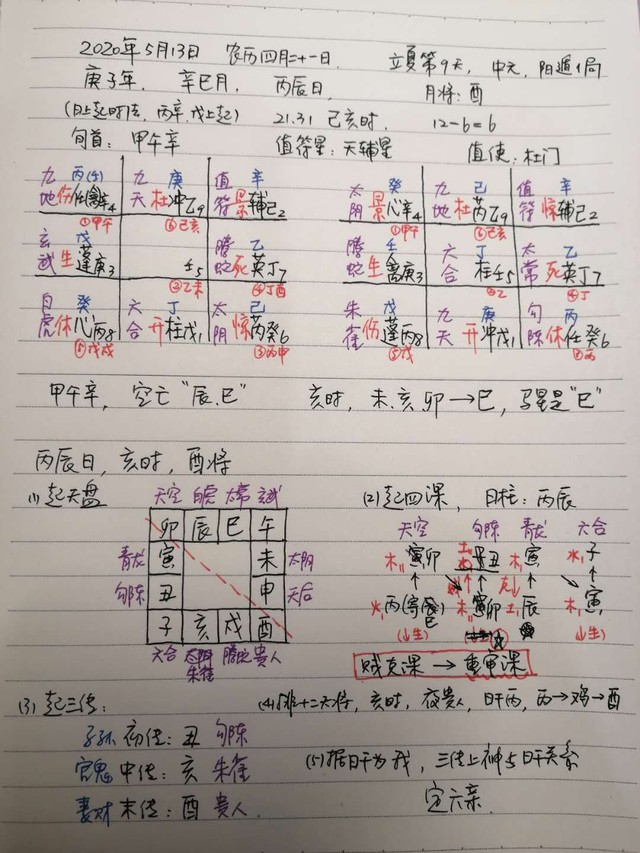 2020年5月13日 农历四月二十一日. 立夏第9天, 中元, 阳遁1局
庚子年, 辛巳月, 丙辰日, 月将:酉
(日上起时法, 丙辛, 戊上起) 21.31 己亥时, 12-6=6
旬首: 甲午辛 值符星:天辅星 值使:杜门
九 丙(壬) 九 庚 值 辛
地 伤 任禽辛4 天 杜 冲乙9 符 景 辅己2
①甲午 ⑥己亥
玄 戊 腾 乙
武 生 蓬庚3 壬5 蛇 死 英丁7
②乙未 ④丁酉
白 癸 六 丁 太 己
虎 休 心丙8 合 开 柱戊1 阴 惊 芮癸6
⑤戊戌 ③丙申
太 癸 九 己 值 辛
阴 景 心辛4 地 杜 芮乙9 符 惊 辅己2
①甲午 ⑥己亥
腾 壬 六 太 乙
蛇 生 禽庚3 合 柱壬5 常 死 英丁7
②乙 ④丁
朱 戊 九 庚 勾 丙
雀 伤 蓬丙8 天 开 冲戊1 陈 休 任癸6
⑤戊 ③丙
甲午辛, 空亡“辰.巳” 亥时, 未.亥.卯→巳, 马星是“巳”
丙辰日, 亥时, 酉将
(1) 起天盘 (2) 起四课, 日柱: 丙辰
天空 白虎 太常 玄武
卯 辰 巳 午
青龙 寅 未 太阴
勾陈 丑 申 天后
子 亥 戌 酉
六合 朱雀 腾蛇 贵人
天空 勾陈 青龙 六合
木 寅卯 土 丑 木 寅 水 子
火 丙 巳 木 寅卯 土 辰 木 寅
(↓生) (↓生) (↓生)
贼克课 → 重审课
(3) 起三传: (4) 排十二天将, 亥时, 夜贵人, 日干丙, 丙→鸡→酉
子孙 初传: 丑 勾陈
官鬼 中传: 亥 朱雀 (5) 据日干为我, 三传上神与日干关系
妻财 末传: 酉 贵人. 定六亲.